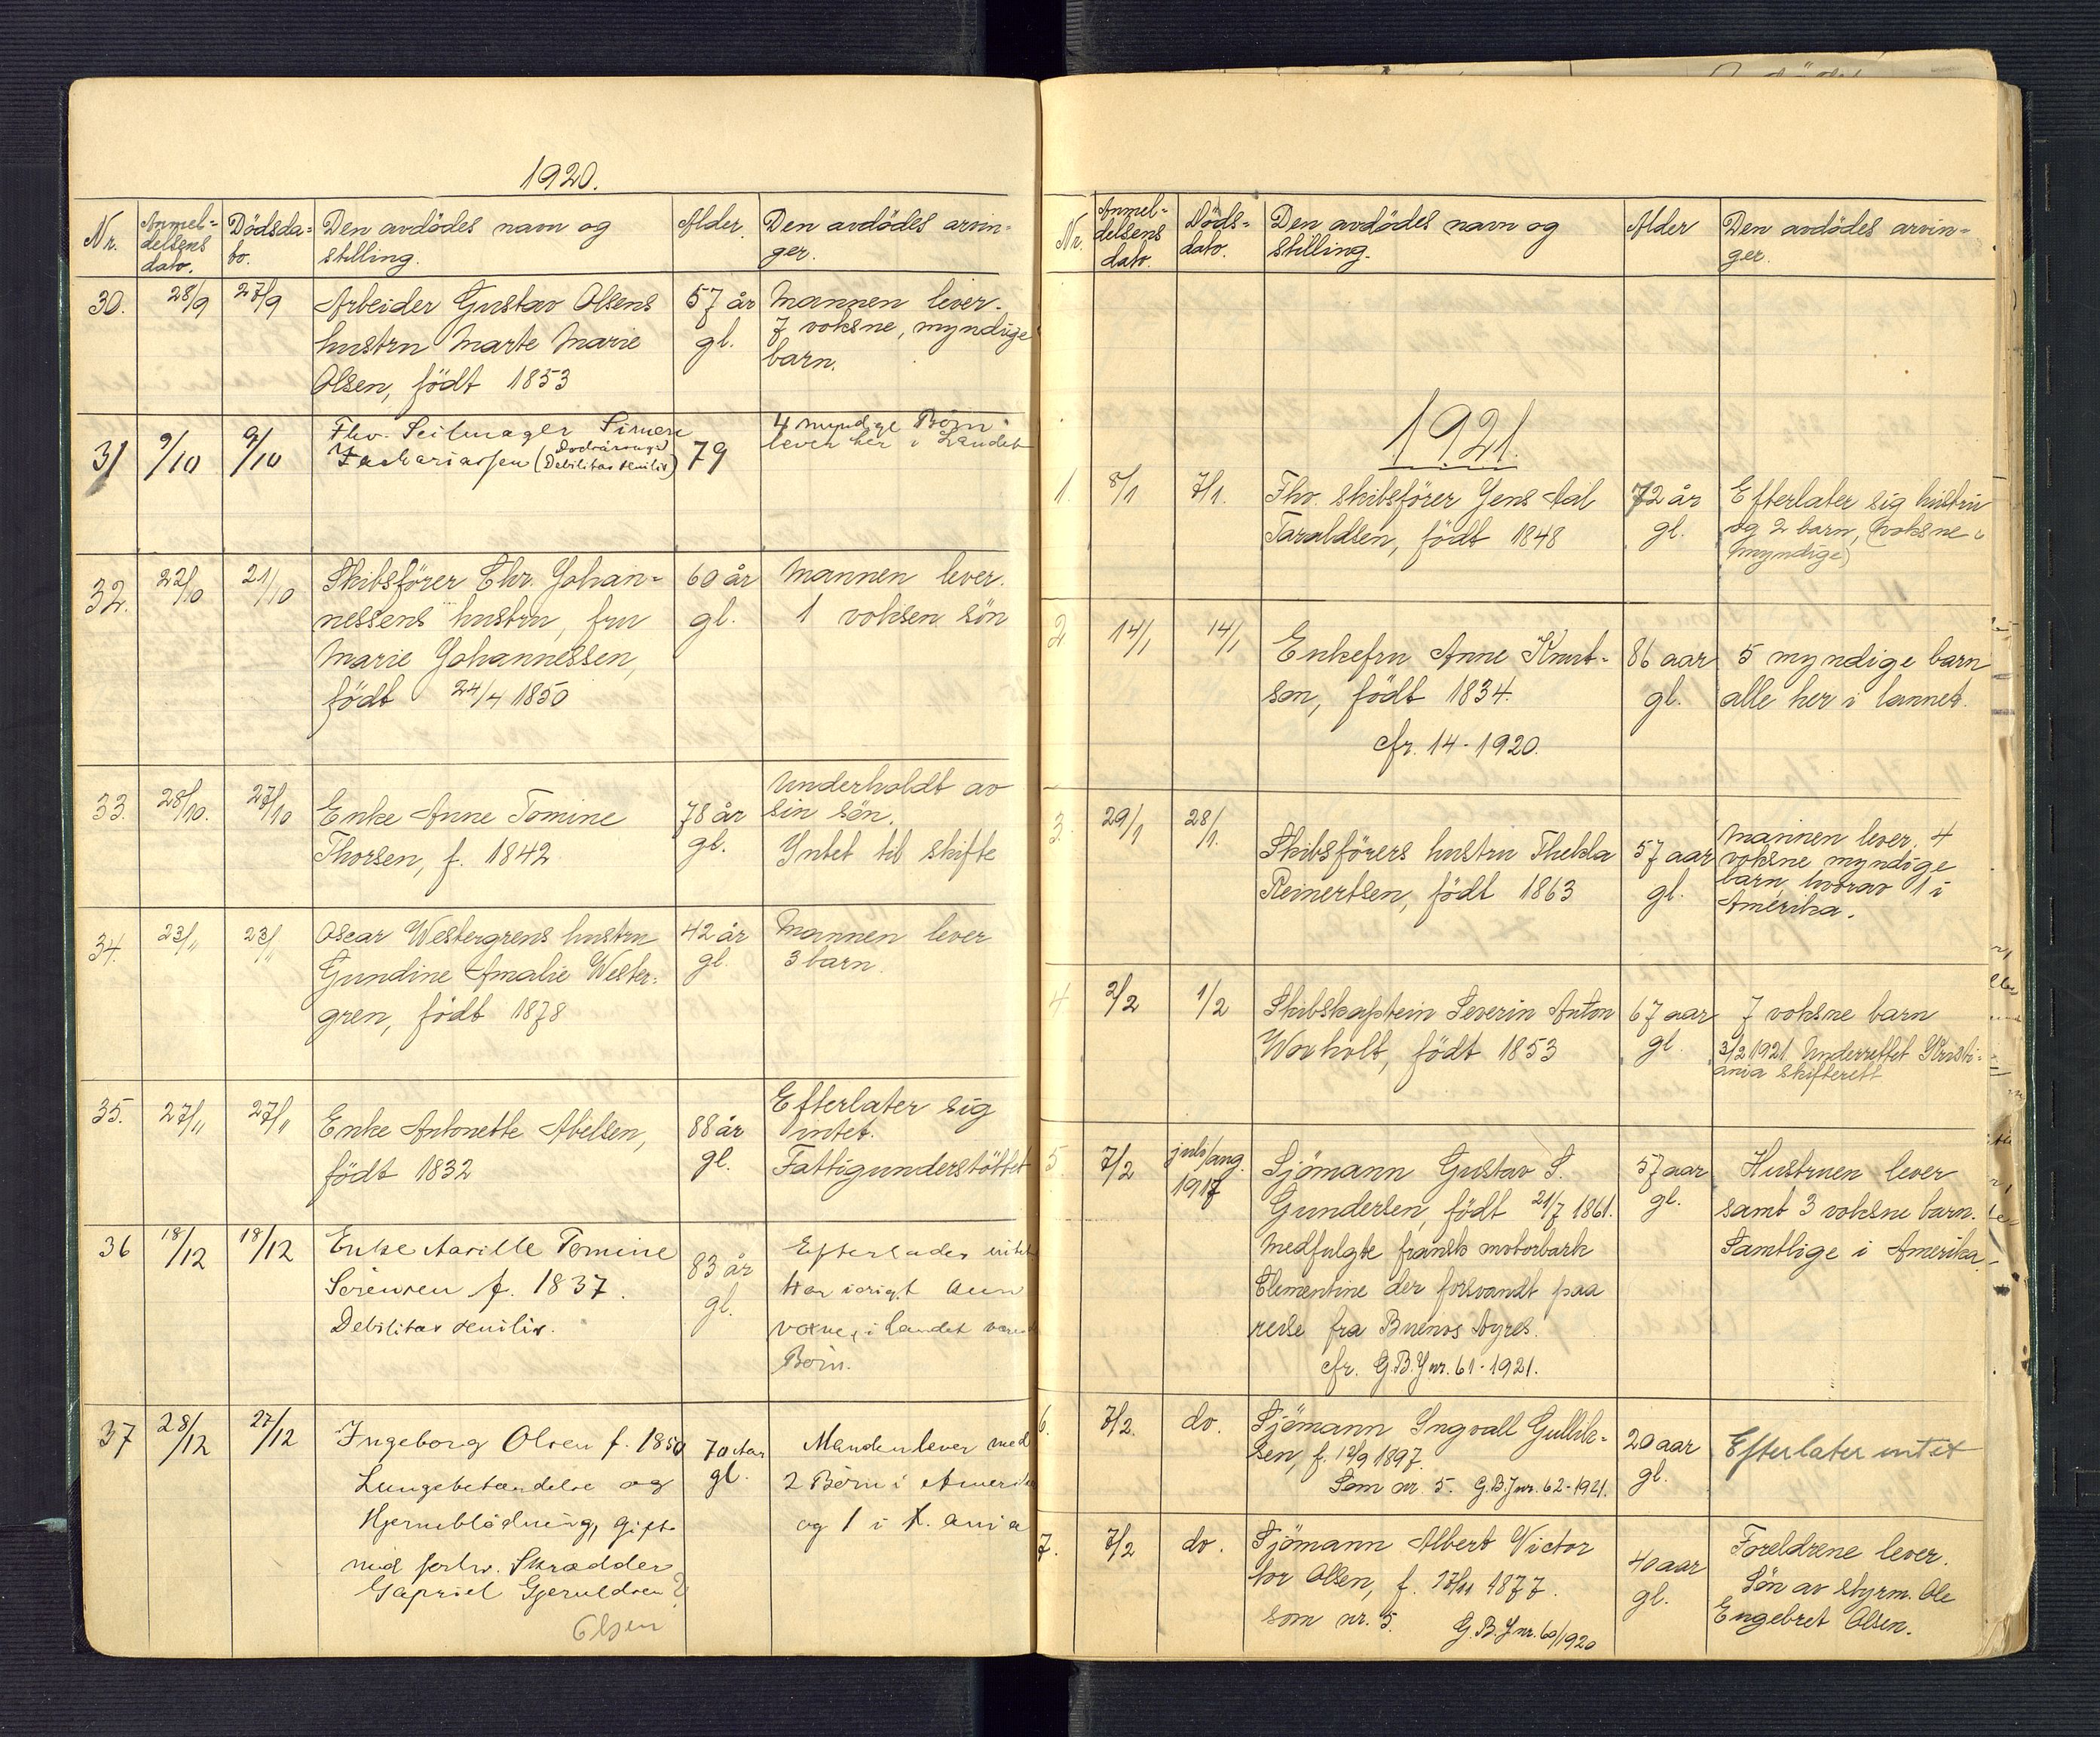 1920.
Nr. Anmel- Dödsda- Den avdödes navn og Alder. Den avdödes arvin-
delsens to. stilling. ger.
dato.
30. 28/9 27/9 Arbeider Gustav Olsens 57 år Mannen lever.
hustru Marte Marie gl. 7 voksne, myndige
Olsen, født 1853 barn.
31 9/10 9/10 Fhv. Seilmager Simen 79 4 myndige Börn
Zachariassen (Debilitas senilis) lever her i Landet
32. 22/10 21/10 Skibsförer Chr. Johan- 60 år Mannen lever.
nessens hustru, fru gl. 1 voksen sön
Marie Johannessen,
födt 24/4 1850
33. 28/10. 27/10 Enke Anne Tomine 78 år Underholdt av
Thorsen, f. 1842 gl. sin sön.
Intet til skifte
34. 23/11 23/11 Oscar Westergrens hustru 42 år Mannen lever
Gundine Amalie Wester- gl. 3 barn.
gren, födt 1878
35. 27/11 27/11 Enke Antonette Abelsen, 88 år Efterlater sig
födt 1832 gl. intet.
Fattigunderstöttet
36 18/12 18/12 Enke Aasille Tomine 83 år Efterlader intet
Sörensen f. 1837. gl. Har iørigt kun
Debilitas senilis. voxne, i landet
Börn.
37 28/12 27/12 Ingeborg Olsen f. 1850 70 Aar Manden lever med
Lungebetændelse og gl. 2 Börn i Amerika
Hjerneblödning, gift og 1 i K.ania
med forhv. Skrædder
Gapriel Gjeruldsen
Olsen
Nr. Anmel- Döds- Den avdödes navn og Alder Den avdödes arvin-
delsens dato. stilling. ger.
dato.
1921.
1. 8/1 7/1. Fhv. skibsförer Jens Aal 72 år Efterlater sig hustru
Taraldsen, födt 1848 gl. og 2 barn, (voksne
myndige)
2 14/1 14/1 Enkefru Anne Knut- 86 aar 5 myndige barn
son, födt 1834. gl. alle her i lannet.
cfr. 14-1920.
3. 29/1 28/1. Skibsförers hustru Thekla 57 aar Mannen lever. 4
Reinertsen, födt 1863 gl. voksne myndige
barn, hvorav 1 i
Amerika.
4 2/2 1/2 Skibskaptein Severin Anton 67 aar 7 voksne barn
Worholt, födt 1853 gl. 3/2 1921 Underrettet Kristi-
ania skifterett
5. 7/2 juli/aug. 1917 Sjömann Gustav S. 57 aar Hustruen lever
Gundersen, födt 21/7 1861. gl. samt 3 voksne barn.
Medfulgte fransk motorbark Samtlige i Amerika.
Clementine der forsvandt paa
reise fra Buenos Ayres.
cfr. G.B.J nr. 61-1921.
6. 7/2. do. Sjömann Ingvall Gullik- 20 aar Efterlater intet
sen, f. 12/9 1897. gl.
Som nr. 5. G.B.J nr. 62-1921.
7. 7/2 do. Sjömann Albert Victor 40 aar Foreldrene lever.
Olsen, f. 17/11 1877. gl. Sön av styrm. Ole
som nr. 5. G.B.J nr. 60/1920 Engebret Olsen.